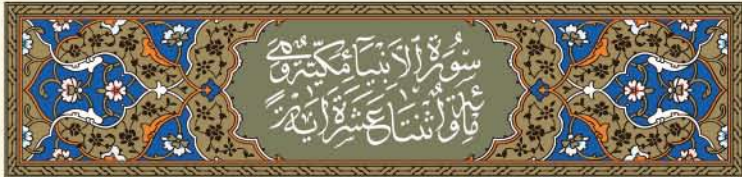 سُورَةُ الْأَنْبِيَاءِ مَكِّيَّةٌ وَهِيَ
مِائَةٌ وَاثْنَتَا عَشْرَةَ آيَةً